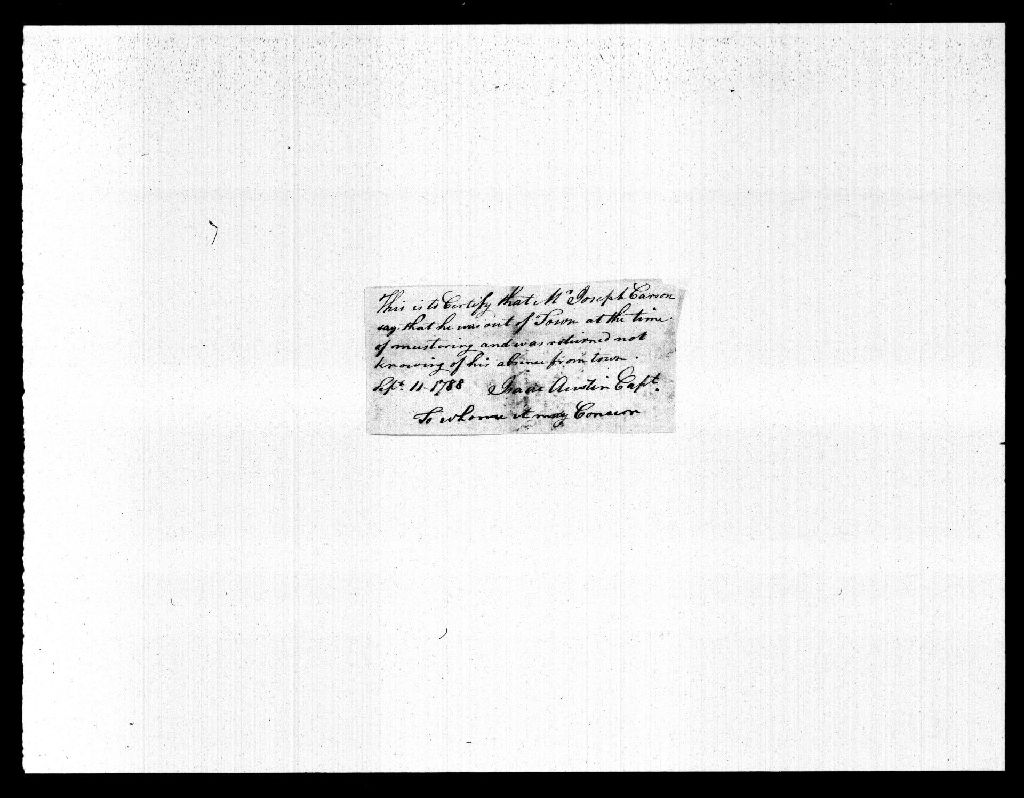 This is to Certify that Mr. Joseph Carson
say that he was out of Town at the time
of mustering and was returned not
knowing of his absence from town.
Sept. 11. 1788 Isaac Austin Capt.
To whome it may Concern